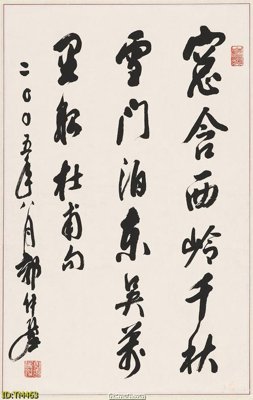 窗含西岭千秋
雪门泊东吴萬
里船杜甫句
二〇〇五年八月郭仲選
ID:TM4463